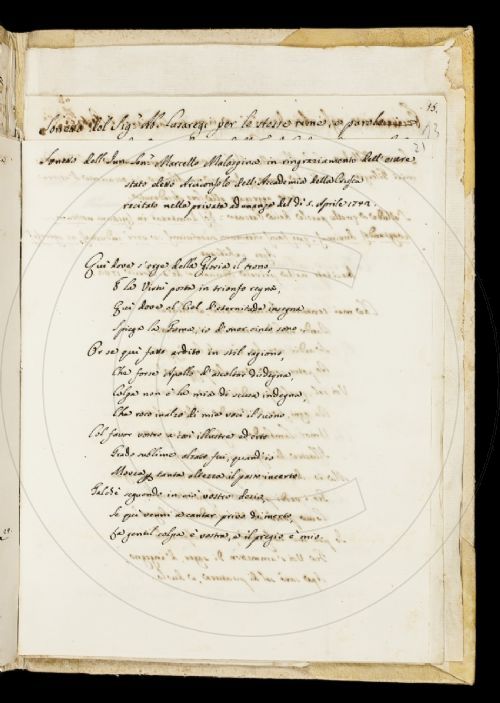 15.
13
21
Sonetto del Sig.r Ab. Casaregi per le stesse rime, e parole
Sonetto dell' Sen.r Marcello Malaspina in ringraziamento dell' essere
stato eletto Arciconsolo dell' Accademia della Crusca
recitato nella privata adunanza del dì 5. Aprile 1742.
Qui dove s'erge della Gloria il trono,
E la Virtù posta in trionfo regna,
Qui dove al Ciel d'eternitade insegna
Spiega la Fama, io d'onor cinto sono
Or se qui fatto ardito in stil ragiono,
Che forse Apollo d'ascoltar disdegna,
Colpa non è la mia di scusa indegna,
Che roco inalzo di mia voce il suono.
Col favor vostro a così illustre ed erto
Grado sublime alzato fui, quand' io
Movea tanta altezza il passo incerto
Talchè seguendo in ciò vostro desio,
Se qui venni a cantar privo di merto,
La gentil colpa è vostra, e il pregio è mio